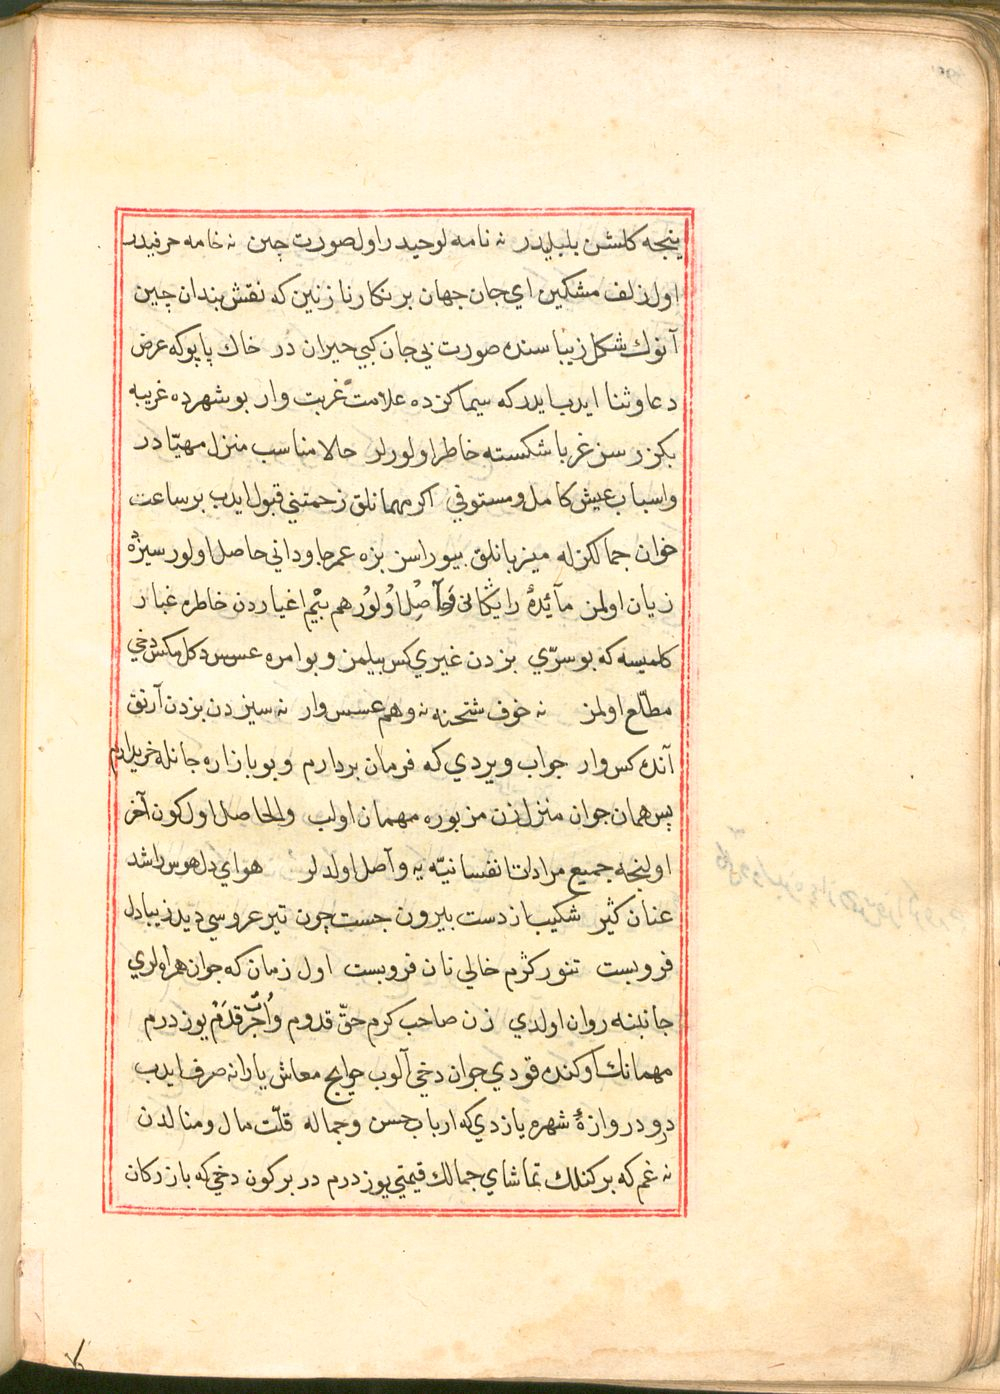 ینجه کلشن بلبلیدر نه نامه لوحیدر اول صورت چین نه خامه حرفیدر
اول زلف مشکین ای جان جهان بر نکار نازنین که نقش بندان چین
آنوك شکل زیباسنده صورت بی جان کبی حیران در خاك پاپوکه عرض
دعا وثنا ایدب ایدر که سیماکزده علامت غربت وار بو شهرده غریبه
بکزرسز غربا شکسته خاطر اولورلر حالا مناسب منزل مهیّا در
واسباب عیش کامل ومستوفی اکر مهمانلق زحمتنی قبول ایدب بر ساعت
خوان جمالکزله میزبانلق بیوراسز بزه عمر جاودانی حاصل اولور سیزه
زیان اولمز مآئدۀ رایکانی حاصل اولور هم بیم اغیاردن خاطره غبار
کلمیسه که بو سرّی بزدن غیری کس بیلمز و بو امره عسس دکل مکس دخی
مطّلع اولمز نه خوف شحنه نه وهم عسس وار نه سیزدن بزدن آرتق
آنده کس وار جواب ویردی که فرمان بردارم و بو بازاره جانله خریدارم
پس همان جوان منزل زن مزبوره مهمان اولب والحاصل اول کون آخر
اولنجه جمیع مرادات نفسانیّه یه وآصل اولدلر هوای دل هوس را شد
عنان کثیر شکیب از دست بیرون جست چون تیر عروسی دید زیبا دل
فروبست تنور کژم خالی نان فروبست اول زمان که جوان هر اولری
جانبنه روان اولدی زن صاحب کرم حقّ قدوم و اجرت قدم یوز درم
مهمانك اوکنده قودی جوان دخی آلوب حوایج معاش یارانه صرف ایدب
در و دروازۀ شهره یازدی که ارباب حسن وجماله قلّت مال ومنالدن
نه غم که بر کنلك تماشای جمالك قیمتی یوز درم در بر کون دخی که بازرکان